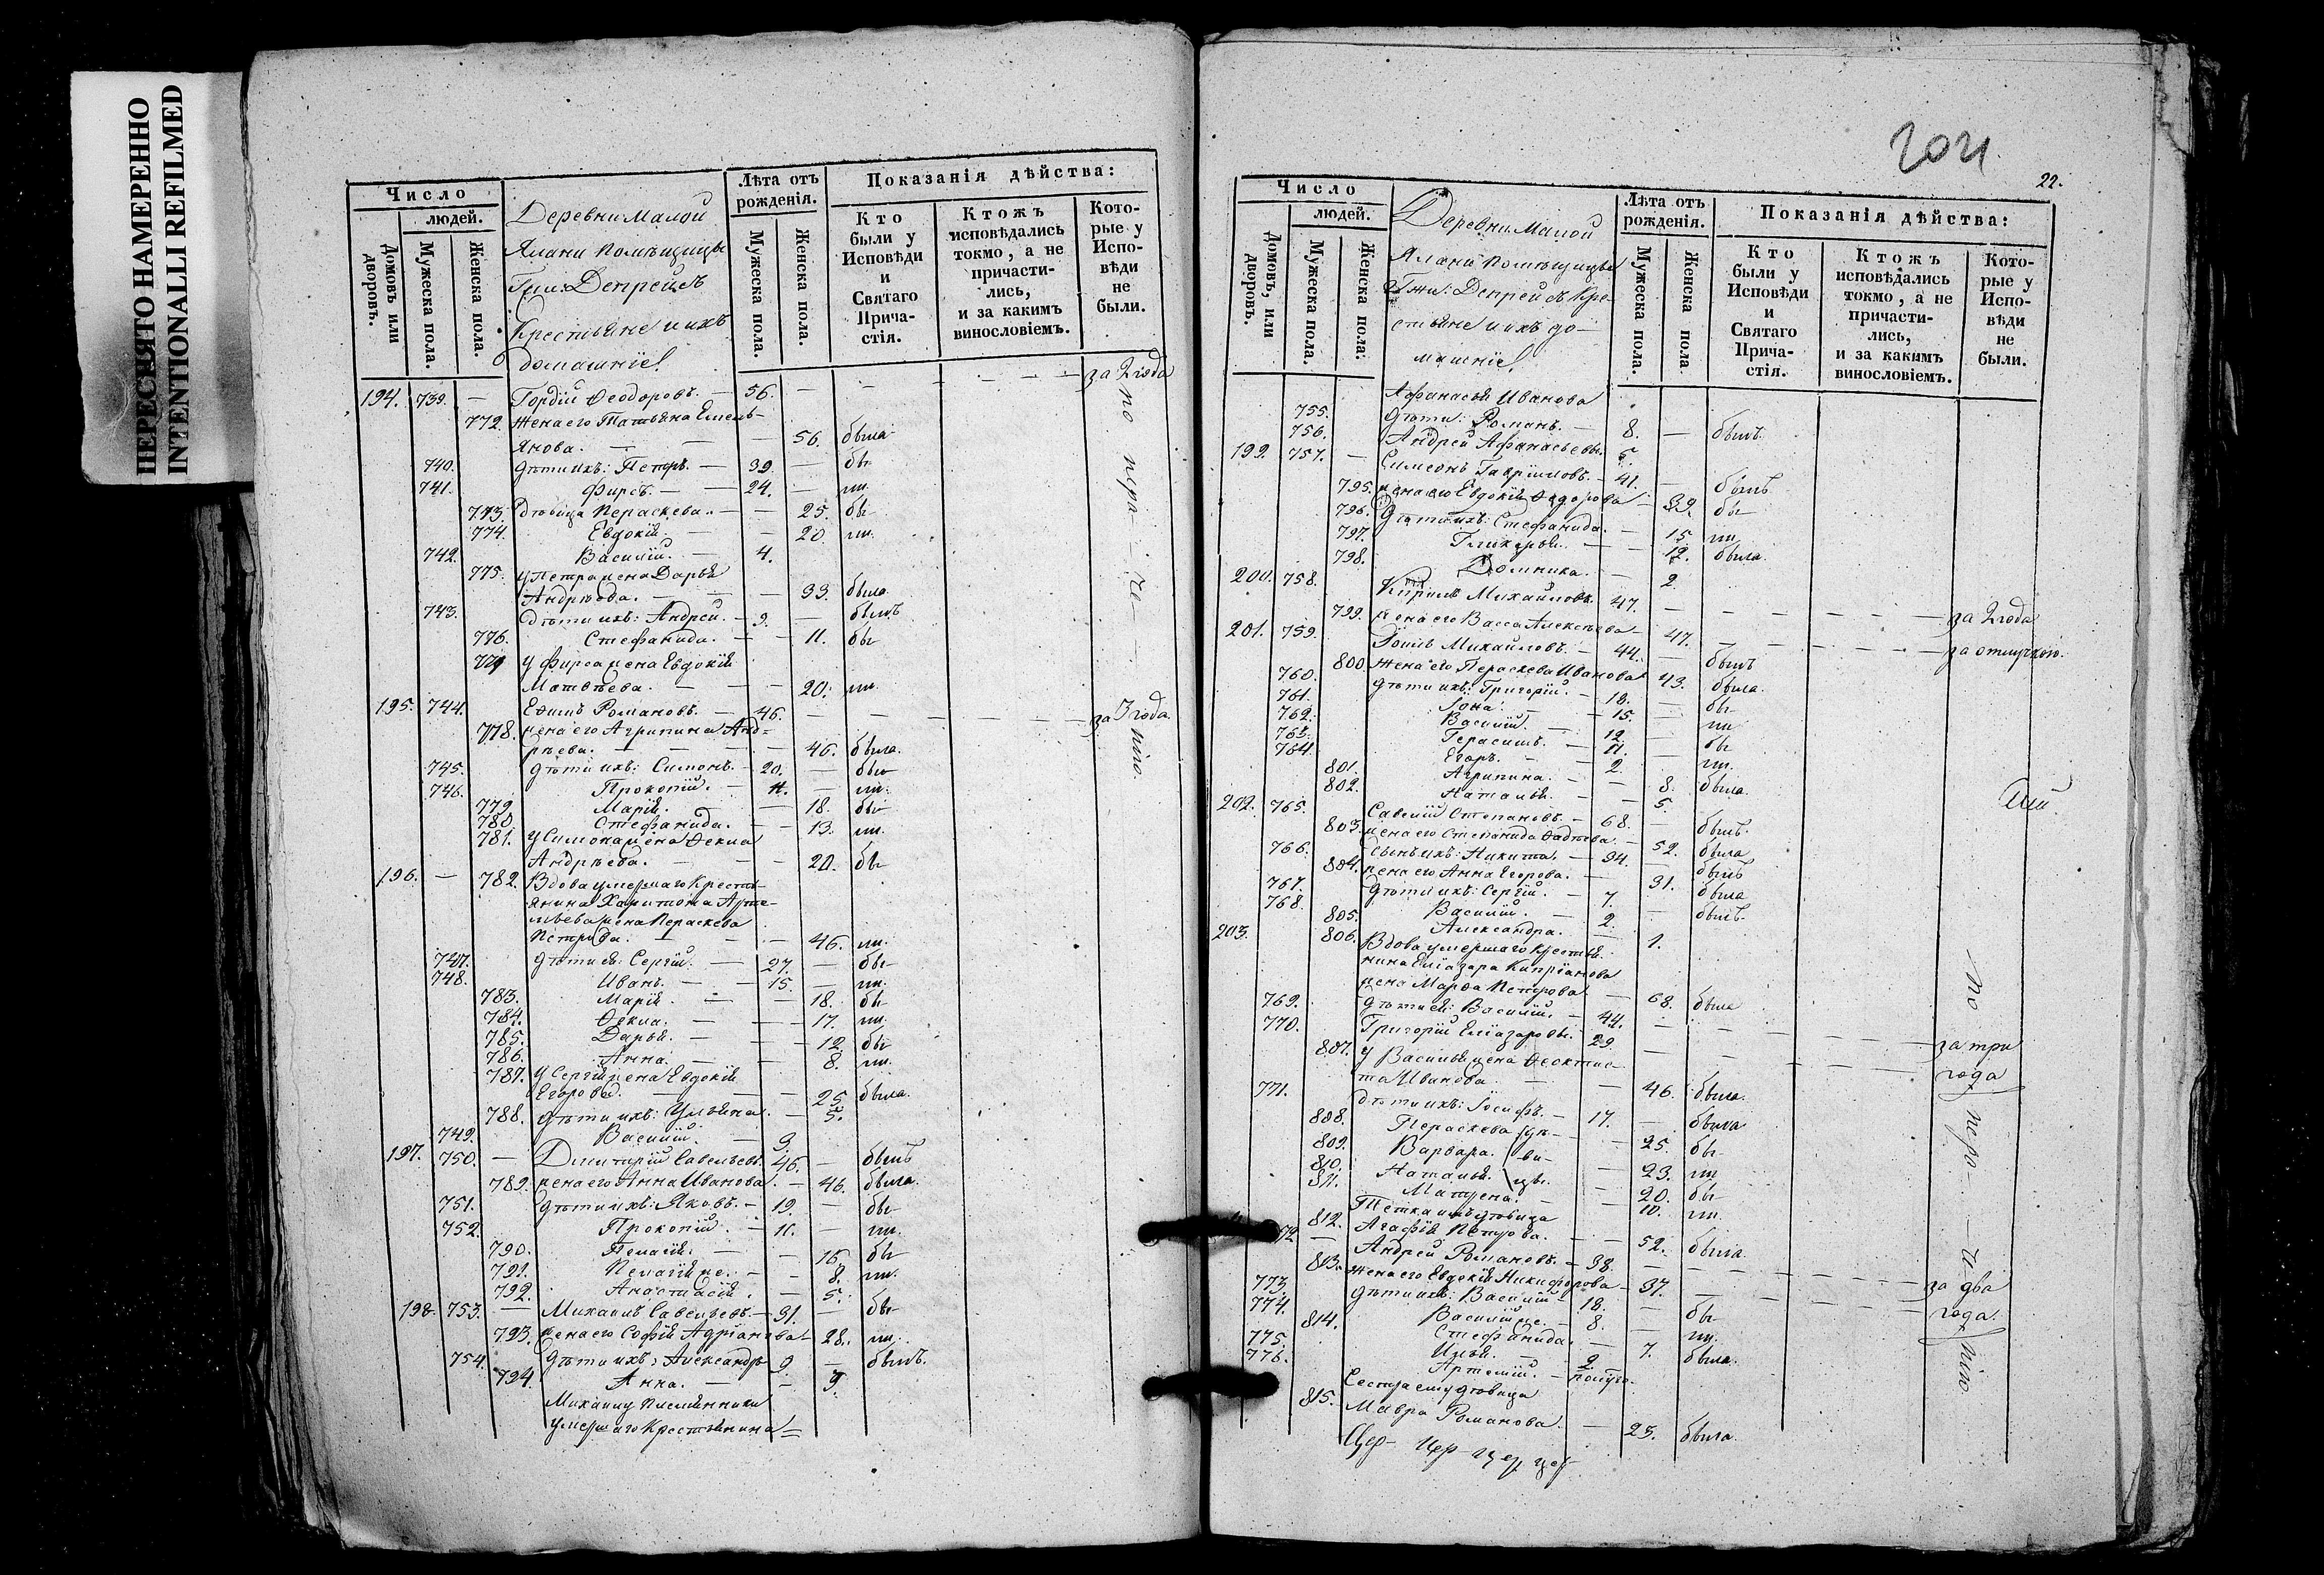 ПЕРЕСНЯТО НАМЕРЕННО
INTENTIONALLI REFILMED
Число
людей.
Домовъ или дворовъ.
Мужеска пола.
Женска пола.
Деревни Малой
Ялани помѣщицы
Депрейсъ
Крестьяне и ихъ
домашніе
Лѣта отъ рожденія.
Мужеска пола.
Женска пола.
Показанія дѣйства:
Кто были у Исповѣди и Святаго Прича-стія.
Ктожъ исповѣдались токмо, а не причасти-лись, и за какимъ винословіемъ.
Кото-рые у Испо-вѣди не были.
194. 739. — Гордій Ѳеодоровъ. — 56. — — — — — за 2 года
772. Жена его Татьяна Емель-
янова. — — — 56. была
740. Дѣти их: Петръ. — 39. — бы-
741. Фирсъ. — 24. — ли.
773. Дѣвица Пераскева. — — 25. бы-
774. Евдокія. — — 20. ли.
742. Василій. — 4.
775. У Петра жена Дарья
Андрѣева. — — — 33. была
743. Дѣти ихъ: Андрей. — 9. — былъ
776. Стефанида. — — 11. бы
У Фирса жена Евдокія
Матвѣева. — — — 20. ли.
195. 744. Ефимъ Романовъ. — 46. — — — — — за 3 года.
778. жена его Агрипина Анд-
рѣева. — — — 46. была.
745. Дѣти ихъ: Симонъ. — 20. — бы-
746. Прокопій. — 11. — ли.
779. Марія. — — 18. бы-
780. Стефанида. — — 13. ли.
781. У Симона жена Ѳекла
Андрѣева. — — — 20. бы-
196. — 782. Вдова умершаго Кресть-
янина Харитона Арте-
мьева жена Пераскева
Петрова. — — — 46. ли.
747. Дѣти ея: Сергій. — 27. — бы-
748. Иванъ. — — 15. — ли.
783. Марія. — — 18. бы-
784. Ѳекла. — — 17. ли.
785. Дарья. — — 12. бы-
786. Анна. — — 8. ли.
787. У Сергія жена Евдокія
Егорова. — — — 25. была.
788. Дѣти ихъ: Ульяна. — 5.
749. Василій. — 9.
197. 750. — Димитрій Савельевъ. 46. — былъ
789. жена его Анна Иванова. — 46. была.
751. Дѣти ихъ: Яковъ. — 19. — бы-
752. Прокопій. — 11. — ли.
790. Пелагія. — — 16. бы-
791. Пелагія же. — — 8. ли.
792. Анастасія. — 5.
198. 753. — Михаилъ Савельевъ. — 31. — бы-
793. жена его Софія Адріанова — 28. ли.
754. Дѣти ихъ: Александръ 9. — былъ.
794. Анна. — — 9.
Михаилу племянники
умершаго Крестьянина
22.
Число
людей.
Домовъ, или дворовъ.
Мужеска пола.
Женска пола.
Деревни Малой
Ялани помѣщицы
Депрейсъ Кре-
стьяне и ихъ до-
машніе
Лѣта отъ рожденія.
Мужеска пола.
Женска пола
Показанія дѣйства:
Кто были у Исповѣди и Святаго Прича-стія.
Ктожъ исповѣдались токмо, а не причасти-лись, и за какимъ винословіемъ.
Кото-рые у Испо-вѣди не были.
Афанасья Иванова
755. Дѣти: Романъ. — 8. — былъ.
756. Андрей Афанасьевы. 5.
199. 757. — Симеонъ Гавриловъ. — 41. — былъ
795. жена его Евдокія Ѳедорова — 39. бы-
796. Дѣти ихъ: Стефанида. — 15. ли
797. Гликерья. — — 12. была.
798. Домника. — 2.
200. 758. Кирилъ Михайловъ. 47. — — — — — за 2 года
799. жена его Васса Алексѣева — 47. — — — — за отлучкою.
201. 759. Михайловъ. — 44. — былъ
800. Жена его Пераскева Иванова 43. была.
760. Дѣти ихъ: Григорій. — 18. — бы-
761. Іона. — 15. — ли
762. Василій. — 12. — бы-
763. Герасимъ. — 11. — ли.
764. Егоръ. — 2.
801. Агрипина. — — 8. была.
802. Наталья. — — 5.
202. 765. Савелій Степановъ. — 68. — былъ.
803. жена его Степанида Фадѣева. — 52. была
766. Сынъ ихъ: Никита. — 34. — былъ
804. жена его Анна Егорова. — 31. была
767. Дѣти ихъ: Сергій. — 7. — былъ.
768. Василій. — 2.
805. Александра. — 1.
203. 806. Вдова умершаго Крестья-
нина Еліазара Кипріанова
жена Марфа Петрова — 68. была
769. Дѣти ея: Василій. — 44. — — — — за три
770. Григорій Еліазаровы. 29. — — — — года
807. У Василья жена Ѳеоктис-
та Иванова. — — 46. была.
771. Дѣти ихъ: Іосифъ. — 17. — была
808. Пераскева — 25. бы-
809. Варвара. — 23. ли
810. Наталья. — 20. бы-
811. Матрена. — 10. ли.
812. Тетка имъ дѣвица
Агафія Петрова. — — 52. была.
772 — Андрей Романовъ. — 38. — — — — за два
813. Жена его Евдокія Никифорова — 37. — — — — года.
773. Дѣти ихъ: Василій — 18. — бы-
774. Василій же. — 8. — ли.
814. Стефанида. — 7. была.
775. Илья. — 2.
776. Артемій. — полуго.
815. Сестра ему дѣвица
Мавра Романова. — 25. была.